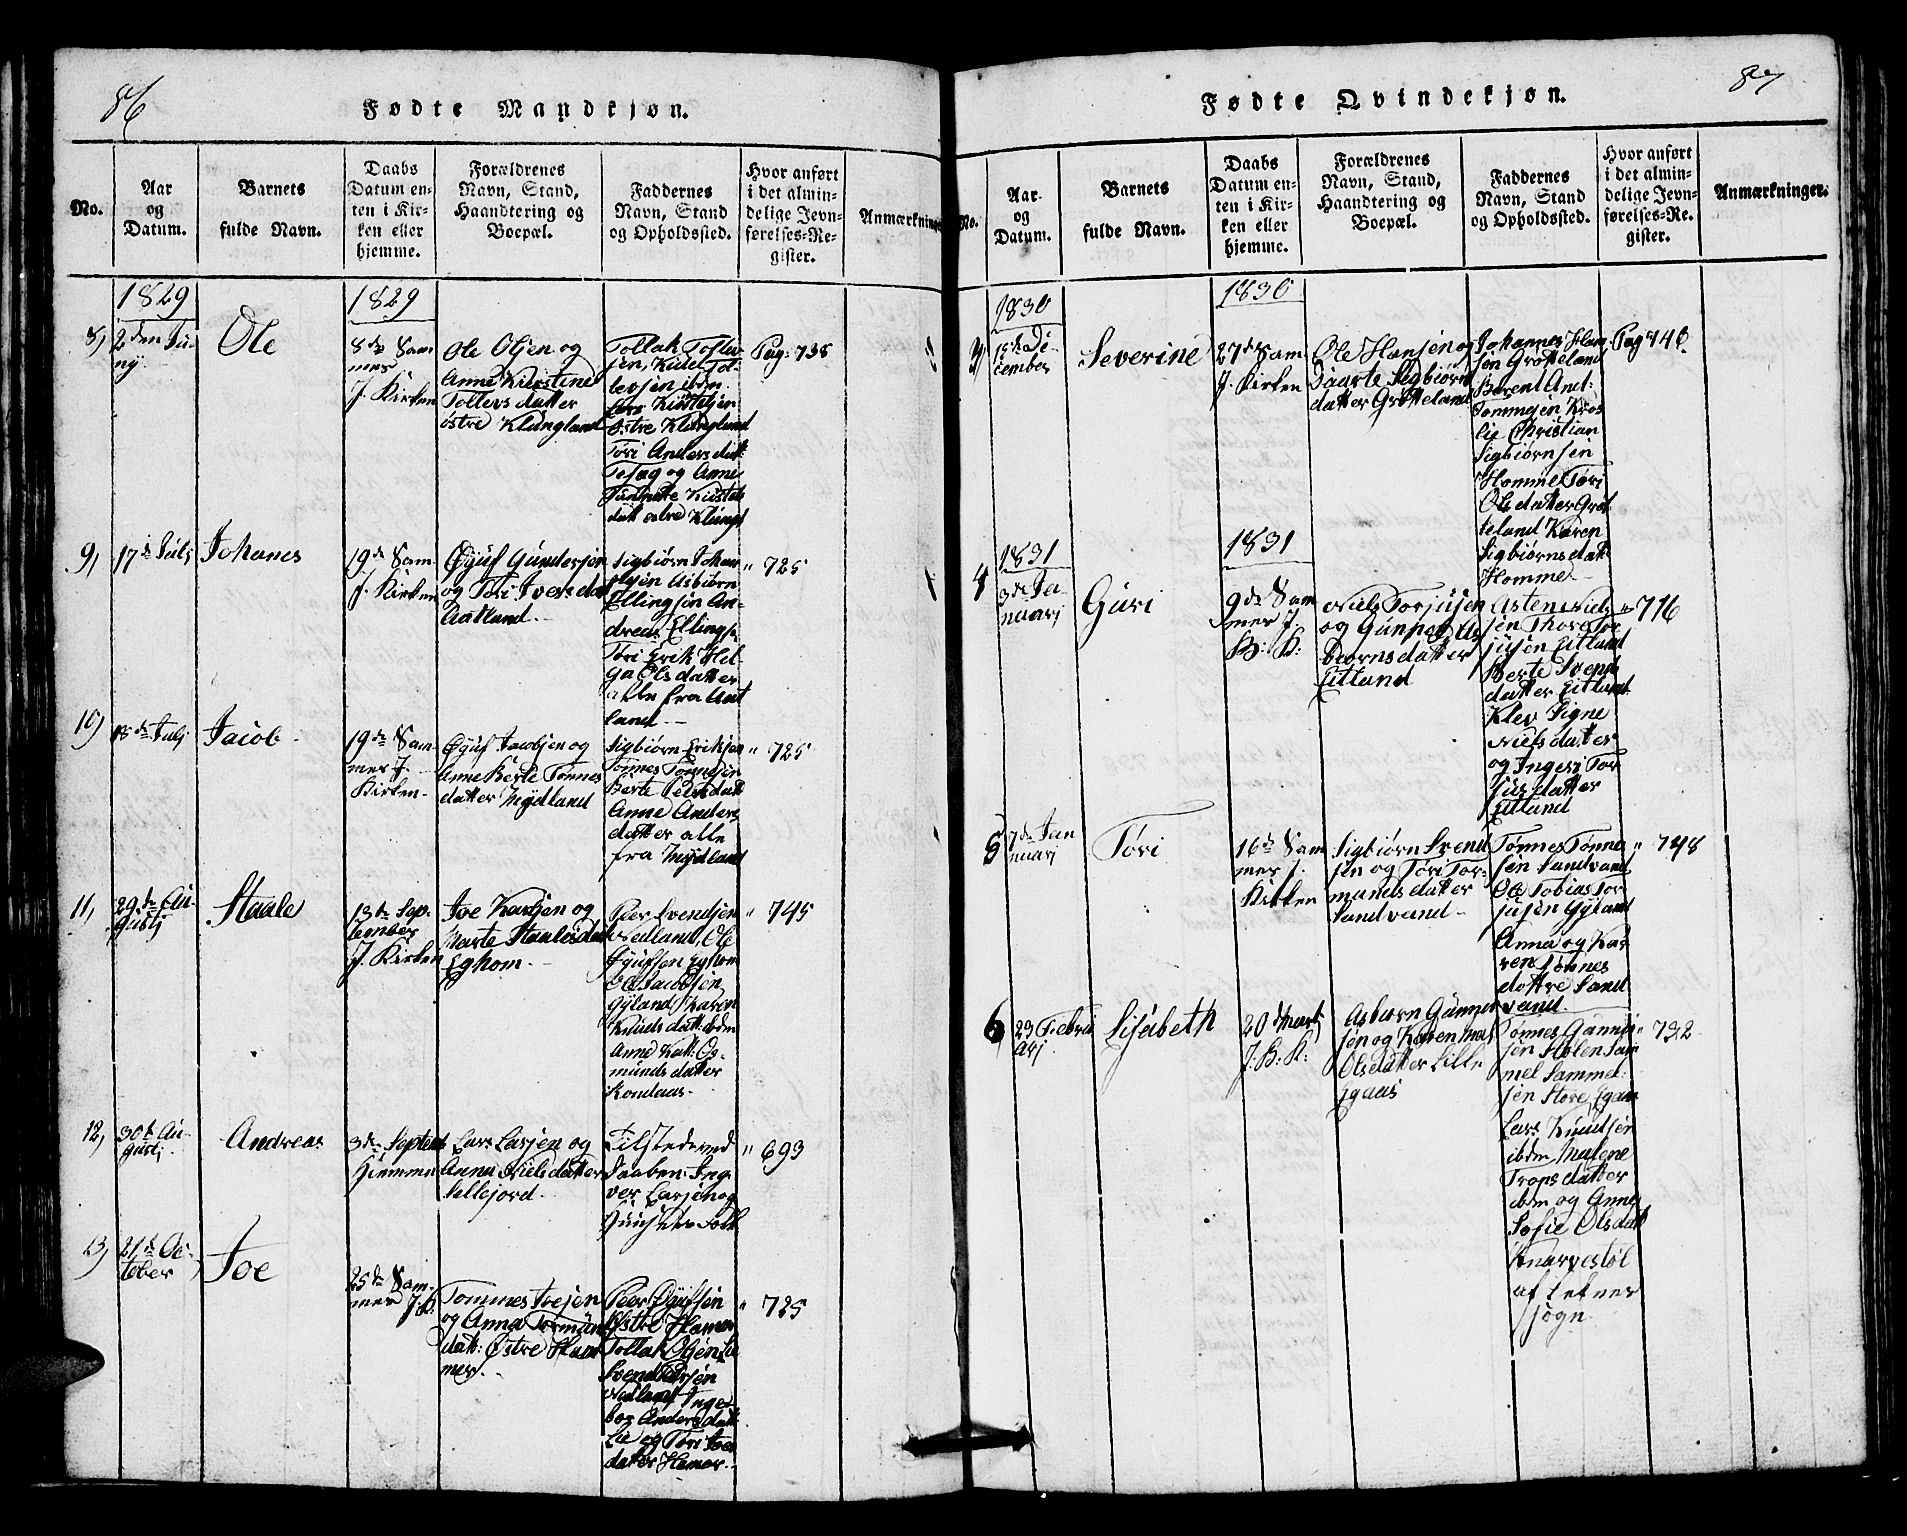 86
Fødte Mandkjøn.
No.
Aar
og
Datum.
Barnets
fulde Navn.
Daabs
Datum en-
ten i Kir-
ken eller
hjemme.
Forældrenes
Navn, Stand,
Haandtering og
Boepæl.
Faddernes
Navn, Stand
og Opholdssted.
Hvor anført
i det almin-
delige Jevn-
førelses-Re-
gister.
Anmærkning
1829
1829
8)
2den Ju-
ny.
Ole
8de Sam
mer
J. Kirken
Ole Olsen og
Anne Kirstine
Tollevs datter
østre Klungland
Tollak Tollev-
sen, Knud Tol-
levsen ibm.
Lars
Østre Klungland
Tøri Anders datt:
og Anne
datt østre Klungl
Pag: 738
9)
17de Julj
Johanes
19de Sam
J. Kirken
Øyuf Gundersen
og Tori Ivers dat
Aatland.
Sigbiørn Johan
Asbiørn
Ellingsen An-
dreas Ellings.
Tøri Erik Hel-
ga Olsdatter
alle fra Aat
land.
" 725
10)
18de Julj
Jacob
19de Sam-
mer J.
Kirken
Øyuf Jacobsen og
Anne Berte Tønnes
datter Mydland
Sigbiørn Eriksen
Tønnes Tønnesen
Berte Peersdatt
Anne Anders
datter alle
fra Mydland
" 725
11)
29de Au-
gustj
Staale
13de Sep-
tember
J. Kirken
Joe Karlsen og
Marte Staalesdatt
Eghom.
Peer Svendsen
Nedland, Ole
Øyufsen Eghom
Ole Jacobsen
Gyland Karen
Knuds datt: ibdm
Anne Katt: Os-
munds datter
Kondaas.
" 745
12)
30te Au-
gustj
Andreas
3de Septemb
Hiemme
Lars Larsen og
Anna Nielsdatter
Lillejord.
Tilstede ved
Daaben: Ing-
ver Larsen og
Huusets Folk
" 693
13)
21de Oc-
tober
Joe
25de Sam-
mer J. K:
Tommes Joesen
og Anna Tormun
datt: Østre Ham
mer.
Peer Øyufsen
Østre Hamer
Tollak Olsen Lie
Svend Peersen
Nedland Inge-
bor Anders datt
Lie og Tøri Joes
datter Hamer.
" 725
87
Fødte Qvindekjøn.
No.
Aar
og
Datum.
Barnets
fulde Navn.
Daabs
Datum en-
ten i Kir-
ken eller
hjemme.
Forældrenes
Navn, Stand,
Haandtering og
Boepæl.
Faddernes
Navn, Stand
og Opholdssted.
Hvor anført
i det almin-
delige Jevn-
førelses-Re-
gister.
Anmærkninger.
1830
1830
3)
15de De-
cember
Severine
27de Sam
J. Kirken
Ole Hansen og
Daarte Sigbiørn
datter Grøtteland
Johannes Han
sen Grøtteland
Berent And:
Tommesen Kros
lie Christian
Sigbiørnsen
Homme Tøri
Ols datter Grøt
teland Karen
Sigbiørns datt
Homme
Pag 746
1831
1831
4
3de Ja-
nuarj
Guri
9de Sam
mer J.
H: K:
Niels Torjusen
og Gunnel As
beørns datter
Eitland
Asten Niels
sen Thore Tor
jusen Eitland
Berte Svens
datter Eitland
Klev Signe
Niels datter
og Ingeri Tor
jus datter
Eitland
" 716
5
7de Jan
nuarj
Tøri
16de Sam
mer J.
Kirken
Sigbiørn Svend
sen og Tøri Tor-
mands datter
Sandvand
Tønnes Tønne
sen Sandvand
Ole Tobias Tor
jusen Gyland
Anna og Kar
ren Tønnes
dottre Sand
vand.
" 748
6
23 Februa
arj
Lisabeth
20 Martj
J. H: K:
Asbørn Gunner
sen og Karen Mal
Olsdatter Lille
Egaas
Tønnes Gunner
sen Stølen Sam
mel Sammel:
sen Store Egaas
Lars Knudsen
ibdm Malene
Trons datter
ibm og Anne
Sofie Olsdatt
Knarvestøl
af Lefner
sogn
" 732